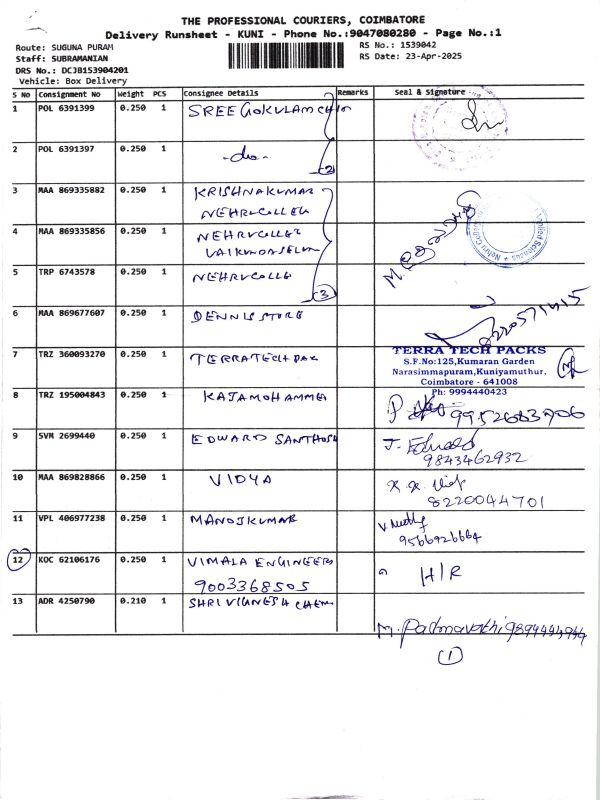 THE PROFESSIONAL COURIERS, COIMBATORE
Delivery Runsheet - KUNI - Phone No.:9047080280 - Page No.:1
Route: SUGUNA PURAM
RS No.: 1539042
Staff: SUBRAMANIAN
RS Date: 23-Apr-2025
DRS No.: DCJB153904201
Vehicle: Box Delivery
S No Consignment No Weight PCS Consignee Details Remarks Seal & Signature
1 POL 6391399 0.250 1 SREE GOKULAM CHIT
2 POL 6391397 0.250 1 -do-
2
3 MAA 869335882 0.250 1 KRISHNAKUMAR
NEHRUCOLLEG
4 MAA 869335856 0.250 1 NEHRUCOLLEG
5 TRP 6743578 0.250 1 NEHRUCOLLE
3
6 MAA 869677607 0.250 1 DENNIS STORE
7 TRZ 360093270 0.250 1 TERRATECH PAK
TERRA TECH PACKS
S.F.No:125,Kumaran Garden
Narasimmapuram,Kuniyamuthur,
Coimbatore - 641008
Ph: 9994440423
8 TRZ 195004843 0.250 1 KAJAMOHAMMED
9 SVM 2699440 0.250 1 EDWARD SANTHOSH
J. Edward
9843462932
10 MAA 869828866 0.250 1 VIDYA
8220044701
11 VPL 406977238 0.250 1 MANOJKUMAR
9566926664
12 KOC 62106176 0.250 1 VIMALA ENGINEERS
9003368505
H/R
13 ADR 4250790 0.210 1 SHRI VIGNESH CHEM
M. Padmavathi
1